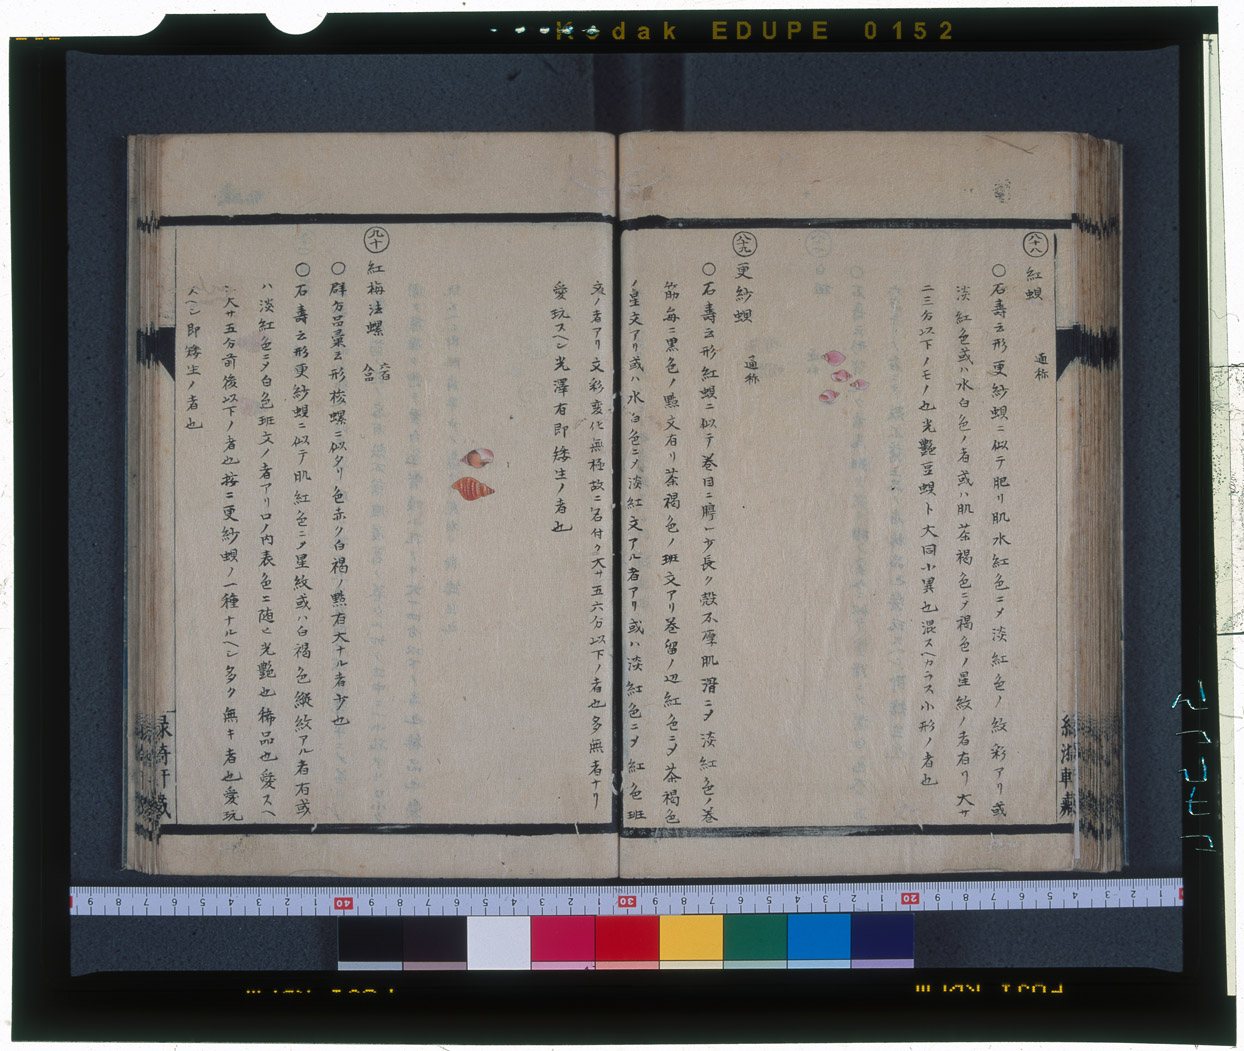 Kodak EDUPE 0152
八十八
紅螺 通称
○石壽云形更紗螺ニ似テ肥リ肌水紅色ニ〆淡紅色ノ紋彩アリ或
淡紅色或ハ水白色ノ者或ハ肌茶褐色ニ〆褐色ノ星紋ノ者有リ大サ
二三分以下ノモノ也光艶豆螺ト大同小異也混スヘカラス小形ノ者也
八十九
更紗螺 通称
○石壽云形紅螺ニ似テ巻目ニ膨レ少長ク殻不厚肌滑ニ〆淡紅色ノ巻
筋毎ニ黒色ノ點文有リ茶褐色ノ班文アリ巻留ノ辺紅色ニ〆茶褐色
ノ星文アリ或ハ水白色ニ〆淡紅文アル者アリ或ハ淡紅色ニ〆紅色班
文ノ者アリ文彩変化無極故ニ名付ク大サ五六分以下ノ者也多無者ナリ
愛玩スヘシ光澤有即矮生ノ者也
九十
紅梅法螺 六百介品
○群分品彙云形核螺ニ似タリ色赤ク白褐ノ點有大ナル者少也
○石壽云形更紗螺ニ似テ肌紅色ニ〆星紋或ハ白褐色縱紋アル者有或
ハ淡紅色ニ〆白色班文ノ者アリロノ内表色ニ随ヒ光艶也稀品也愛スヘ
シ大サ五分前後以下ノ者也按ニ更紗螺ノ一種ナルヘシ多ク無キ者也愛玩
スヘシ即矮生ノ者也
20
30
40